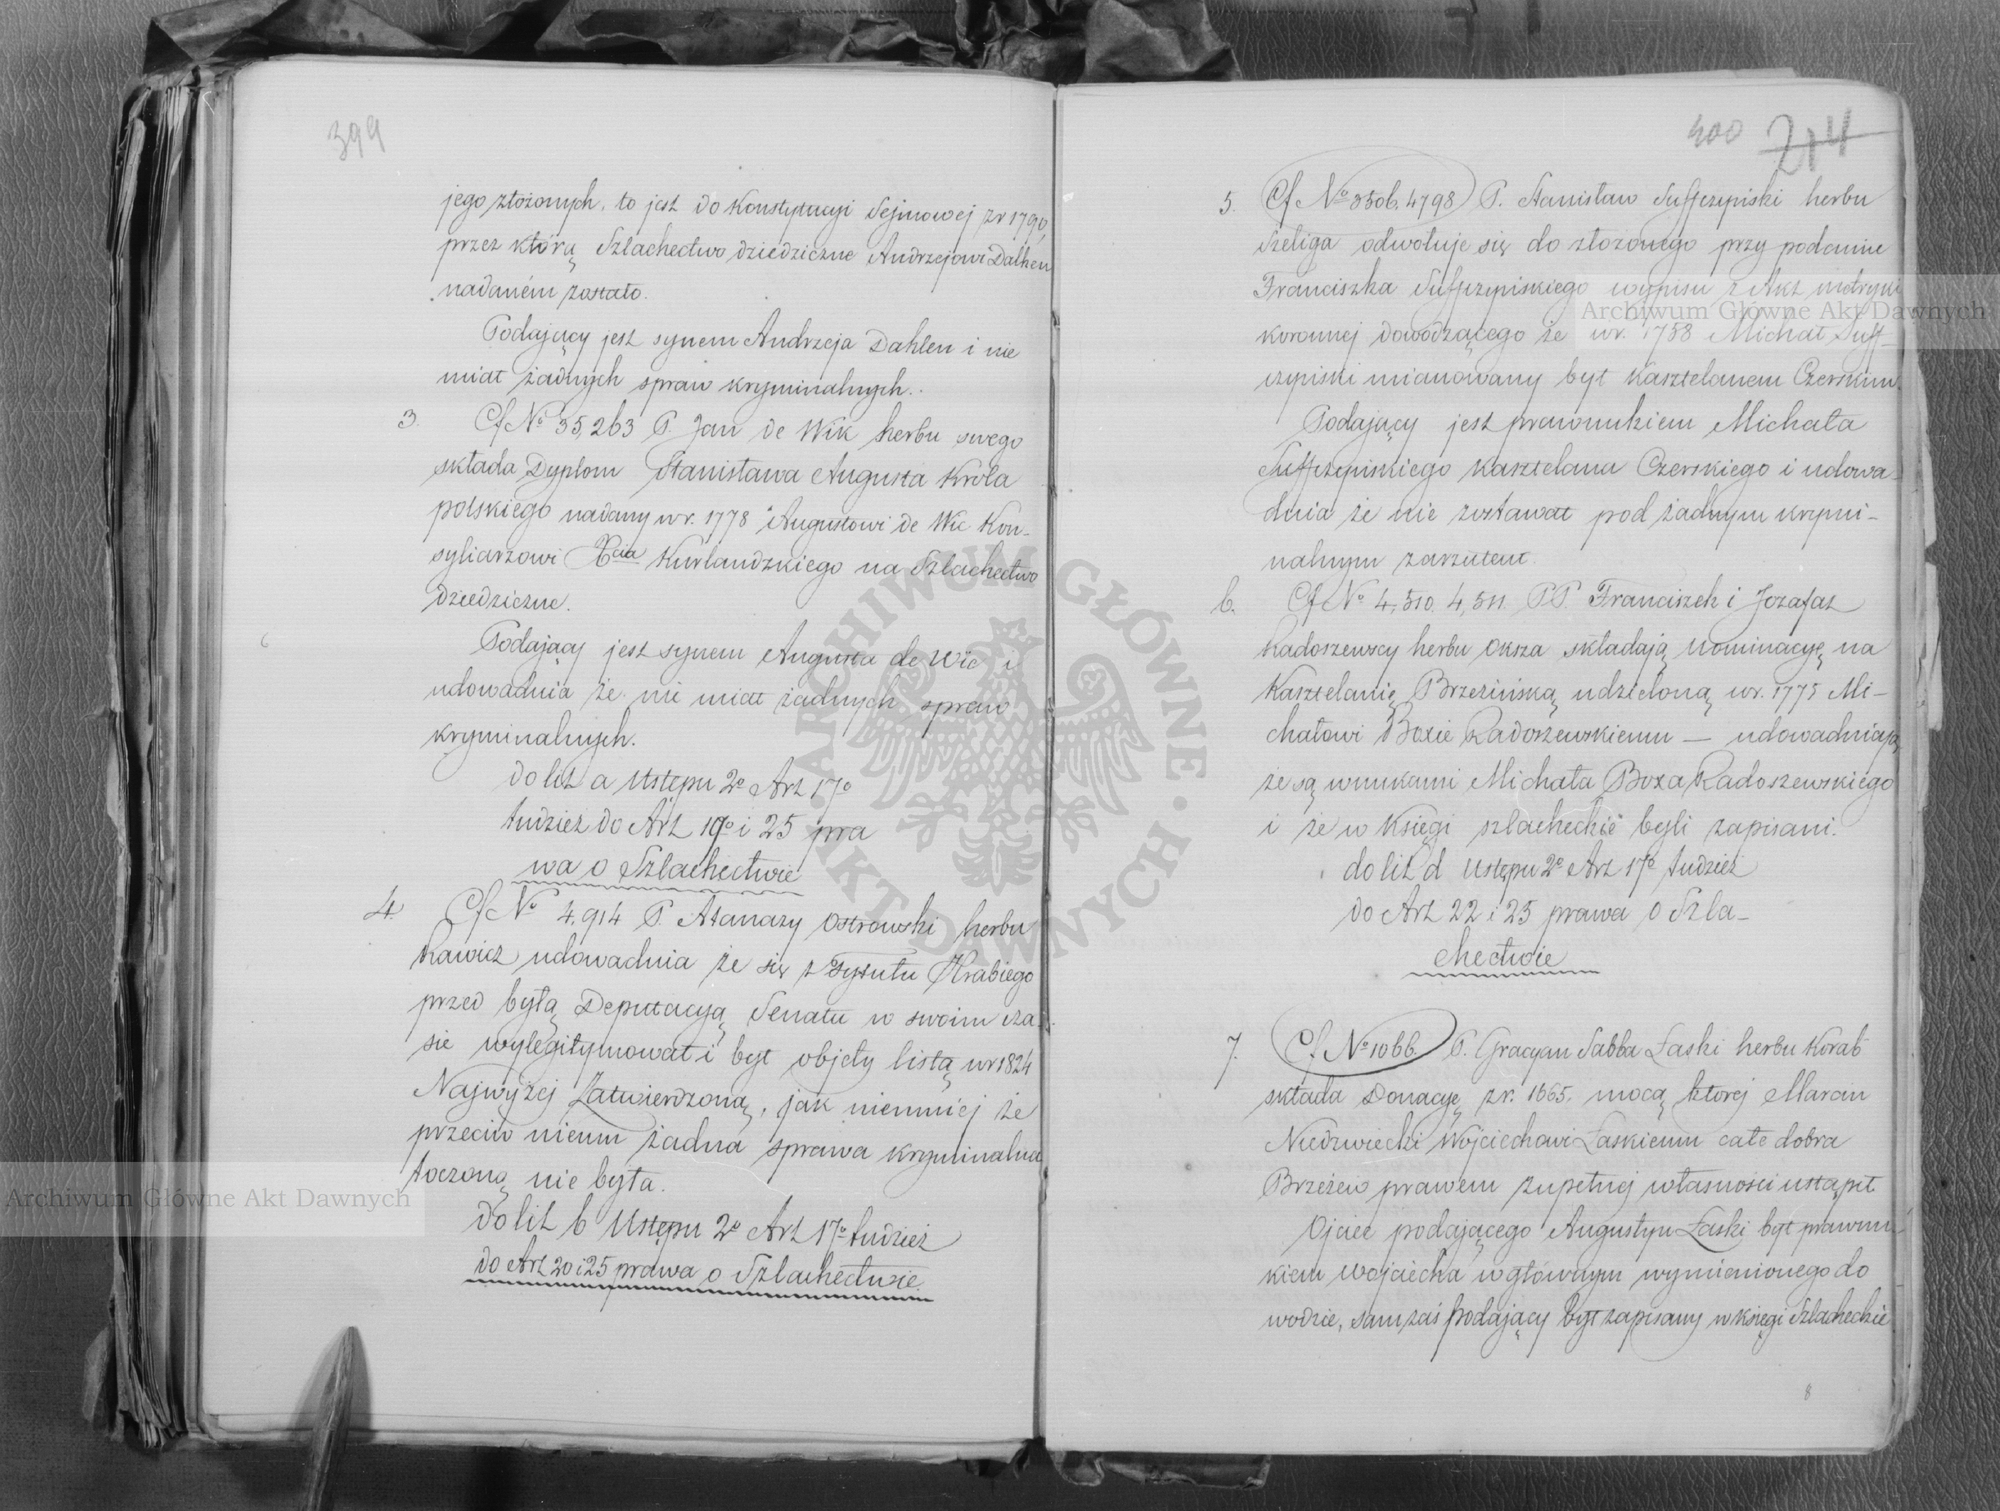 399
jego złożonych, to jest do Konstytucyi Sejmowej zr 1790,
przez którą Szlachectwo dziedziczne Andrzejowi Dalhen
nadaném zostało.
Podający jest synem Andrzeja Dahlen i nie
miał żadnych spraw kryminalnych.
3. Cf No 35,263 P. Jan de Wik herbu swego
składa Dyplom Stanisława Augusta Króla
polskiego nadany w r. 1778 Augustowi de Wic Kon-
syliarzowi Xcia Kurlandzkiego na Szlachectwo
dziedziczne.
Podający jest synem Augusta de Wic i
udowadnia że nie miał żadnych spraw
kryminalnych.
do lit a Ustępu 2o Art 17o
tudzież do Art 19o i 25 pra
wa o Szlachectwie
4 Cf No 4,914 P. Atanazy Ostrowski herbu
Rawicz udowadnia że się z tytułu Hrabiego
przed byłą Deputacyą Senatu w swoim cza-
sie wylegitymował i był objęty listą w r 1824
Najwyżej Zatwierdzoną, jak niemniej że
przeciw niemu żadna sprawa kryminalna
toczoną nie była.
do lit b Ustępu 2o Art 17o tudzież
do Art 20 i 25 prawa o Szlachectwie
400 214
5. Cf No 3506. 4798 P. Stanisław Suffczyński herbu
Szeliga odwołuje się do złożonego przy podaniu
Franciszka Suffczyńskiego wypisu z Akt metryki
koronnej dowodzącego że w r. 1758 Michał Suff-
czyński mianowany był Kasztelanem Czerskim.
Podający jest prawnukiem Michała
Suffczyńskiego Kasztelana Czerskiego i udowa-
dnia że nie zostawał pod żadnym krymi-
nalnym zarzutem.
6. Cf No 4,510. 4,511. PP. Franciszek i Jozafat
Radoszewscy herbu Oksza składają Nominacyę na
Kasztelanię Brzezińską udzieloną w r. 1775 Mi-
chałowi Boxie Radoszewskiemu — udowadniają
że są wnukami Michała Boxa Radoszewskiego
i że w Księgi szlacheckie byli zapisani.
do lit d Ustępu 2o Art 17o tudzież
do Art 22 i 25 prawa o Szla-
chectwie
7. Cf No 1066 P. Gracyan Sabba Łaski herbu Korab
składa Donacyę z r. 1665. mocą której Marcin
Niedzwiecki Wojciechowi Łaskiemu całe dobra
Brzeżew prawem zupełnej własności ustąpił
Ojciec podającego Augustyn Łaski był prawnu-
kiem Wojciecha w głównym wymienionego do
wodzie, sam zaś Podający był zapisany w księgi Szlacheckie
8
Archiwum Główne Akt Dawnych
Archiwum Główne Akt Dawnych
ARCHIWUM GŁÓWNE · AKT DAWNYCH ·